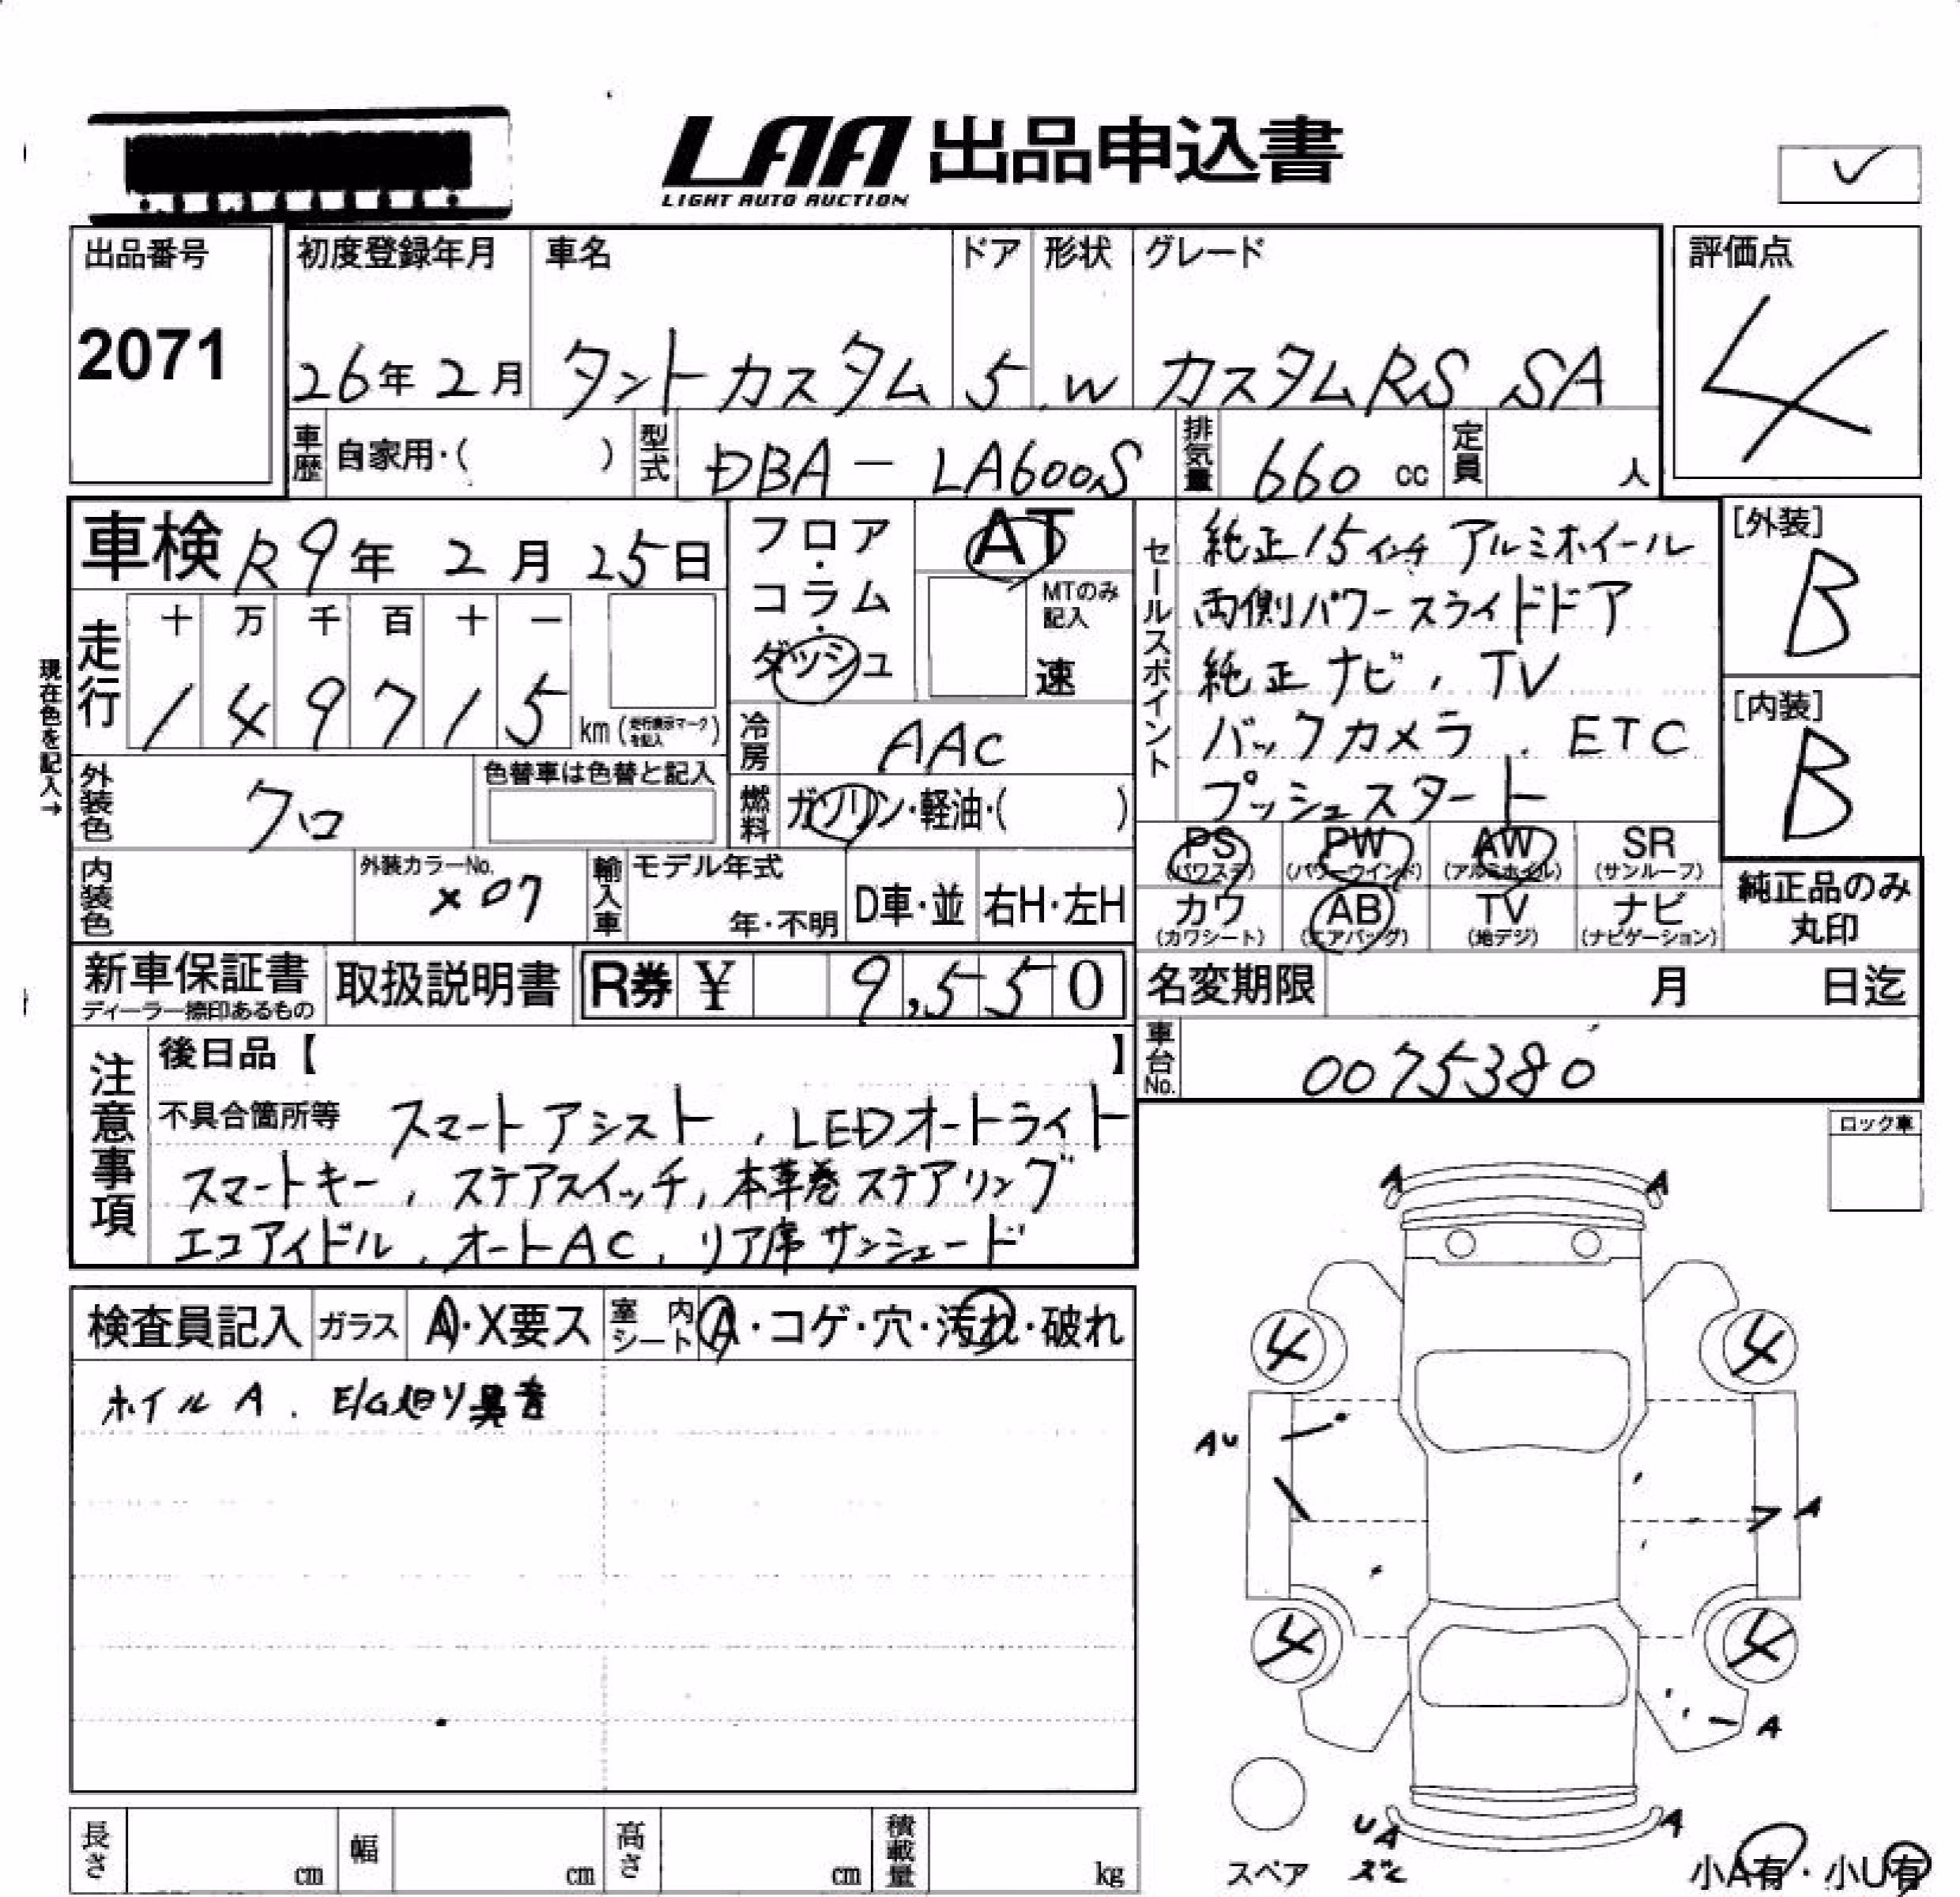 LAA 出品申込書
LIGHT AUTO AUCTION
✓
出品番号 初度登録年月 車名 ドア 形状 グレード 評価点
2071 26年 2月 タントカスタム 5 W カスタムRS SA 4
車歴 自家用・( ) 型式 DBA - LA600S 排気量 660 cc 定員 人
車検 R9年 2月 25日 フロア・コラム・ダッシュ AT
MTのみ記入 速
走行 十 万 千 百 十 一
1 4 9 7 1 5 km (走行表示マークを記入)
冷房 AAC
現在色を記入→
外装色 クロ 色替車は色替と記入 燃料 ガソリン・軽油・( )
内装色 外装カラーNo. X07 輸入車 モデル年式 年・不明 D車・並 右H・左H
セールスポイント 純正15インチ アルミホイール
両側パワースライドドア
純正ナビ, TV
バックカメラ, ETC
プッシュスタート
[外装]
B
[内装]
B
PS PW AW SR
(パワステ) (パワーウインド) (アルミホイル) (サンルーフ)
カワ AB TV ナビ
(カワシート) (エアバッグ) (地デジ) (ナビゲーション)
純正品のみ
丸印
新車保証書 取扱説明書 R券 ¥ 9,550 名変期限 月 日迄
ディーラー捺印あるもの
車台No. 0075380
注意事項 後日品【 】
不具合箇所等 スマートアシスト, LEDオートライト
スマートキー, ステアスイッチ, 本革巻ステアリング
エコアイドル, オートAC, リア席サンシェード
ロック車
検査員記入 ガラス A・X要ス 室内シート A・コゲ・穴・汚れ・破れ
ホイルA. E/G廻り異音
A A
4 4
AU
A
4 4
A
UA A
スペア
小A有・小U有
長さ cm 幅 cm 高さ cm 積載量 kg